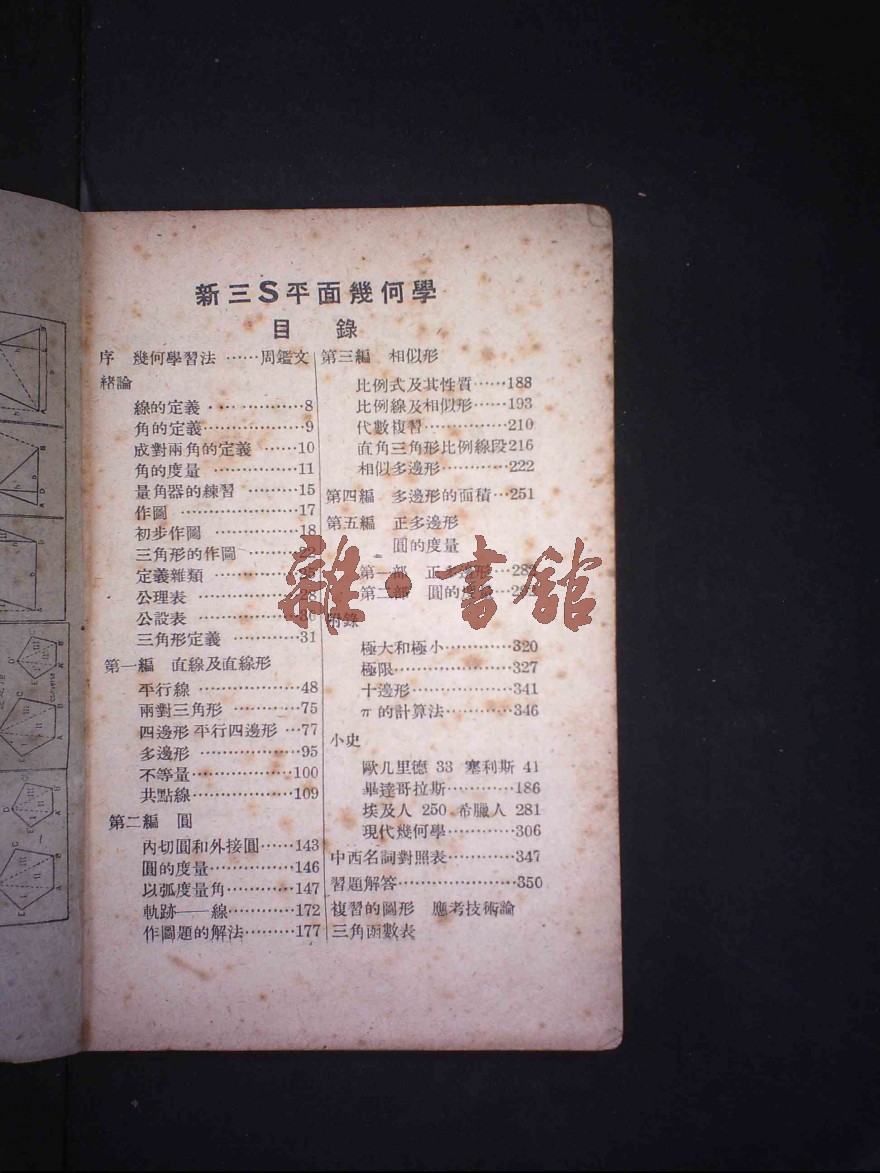 新三S平面幾何學
目　錄
序　幾何學習法 ……周鑑文
緒論
線的定義 ………………8
角的定義………………9
成對兩角的定義 ……10
角的度量 ……………11
量角器的練習 ………15
作圖 …………………17
初步作圖 ……………18
三角形的作圖 ………22
定義雜類 ……………25
公理表 ………………28
公設表 ………………30
三角形定義 …………31
第一編　直線及直線形
平行線 ………………48
兩對三角形 …………75
四邊形 平行四邊形 …77
多邊形 ………………95
不等量………………100
共點線………………109
第二編　圓
內切圓和外接圓……143
圓的度量……………146
以弧度量角…………147
軌跡——線…………172
作圖題的解法………177
第三編　相似形
比例式及其性質……188
比例線及相似形……193
代數複習……………210
直角三角形比例線段216
相似多邊形…………222
第四編　多邊形的面積…251
第五編　正多邊形
圓的度量
第一部　正多邊形…
第二部　圓的度量…
附錄
極大和極小…………320
極限…………………327
十邊形………………341
π 的計算法…………346
小史
歐几里德 33 塞利斯 41
畢達哥拉斯…………186
埃及人 250 希臘人 281
現代幾何學…………306
中西名詞對照表…………347
習題解答…………………350
複習的圖形　應考技術論
三角函數表
雜·書館